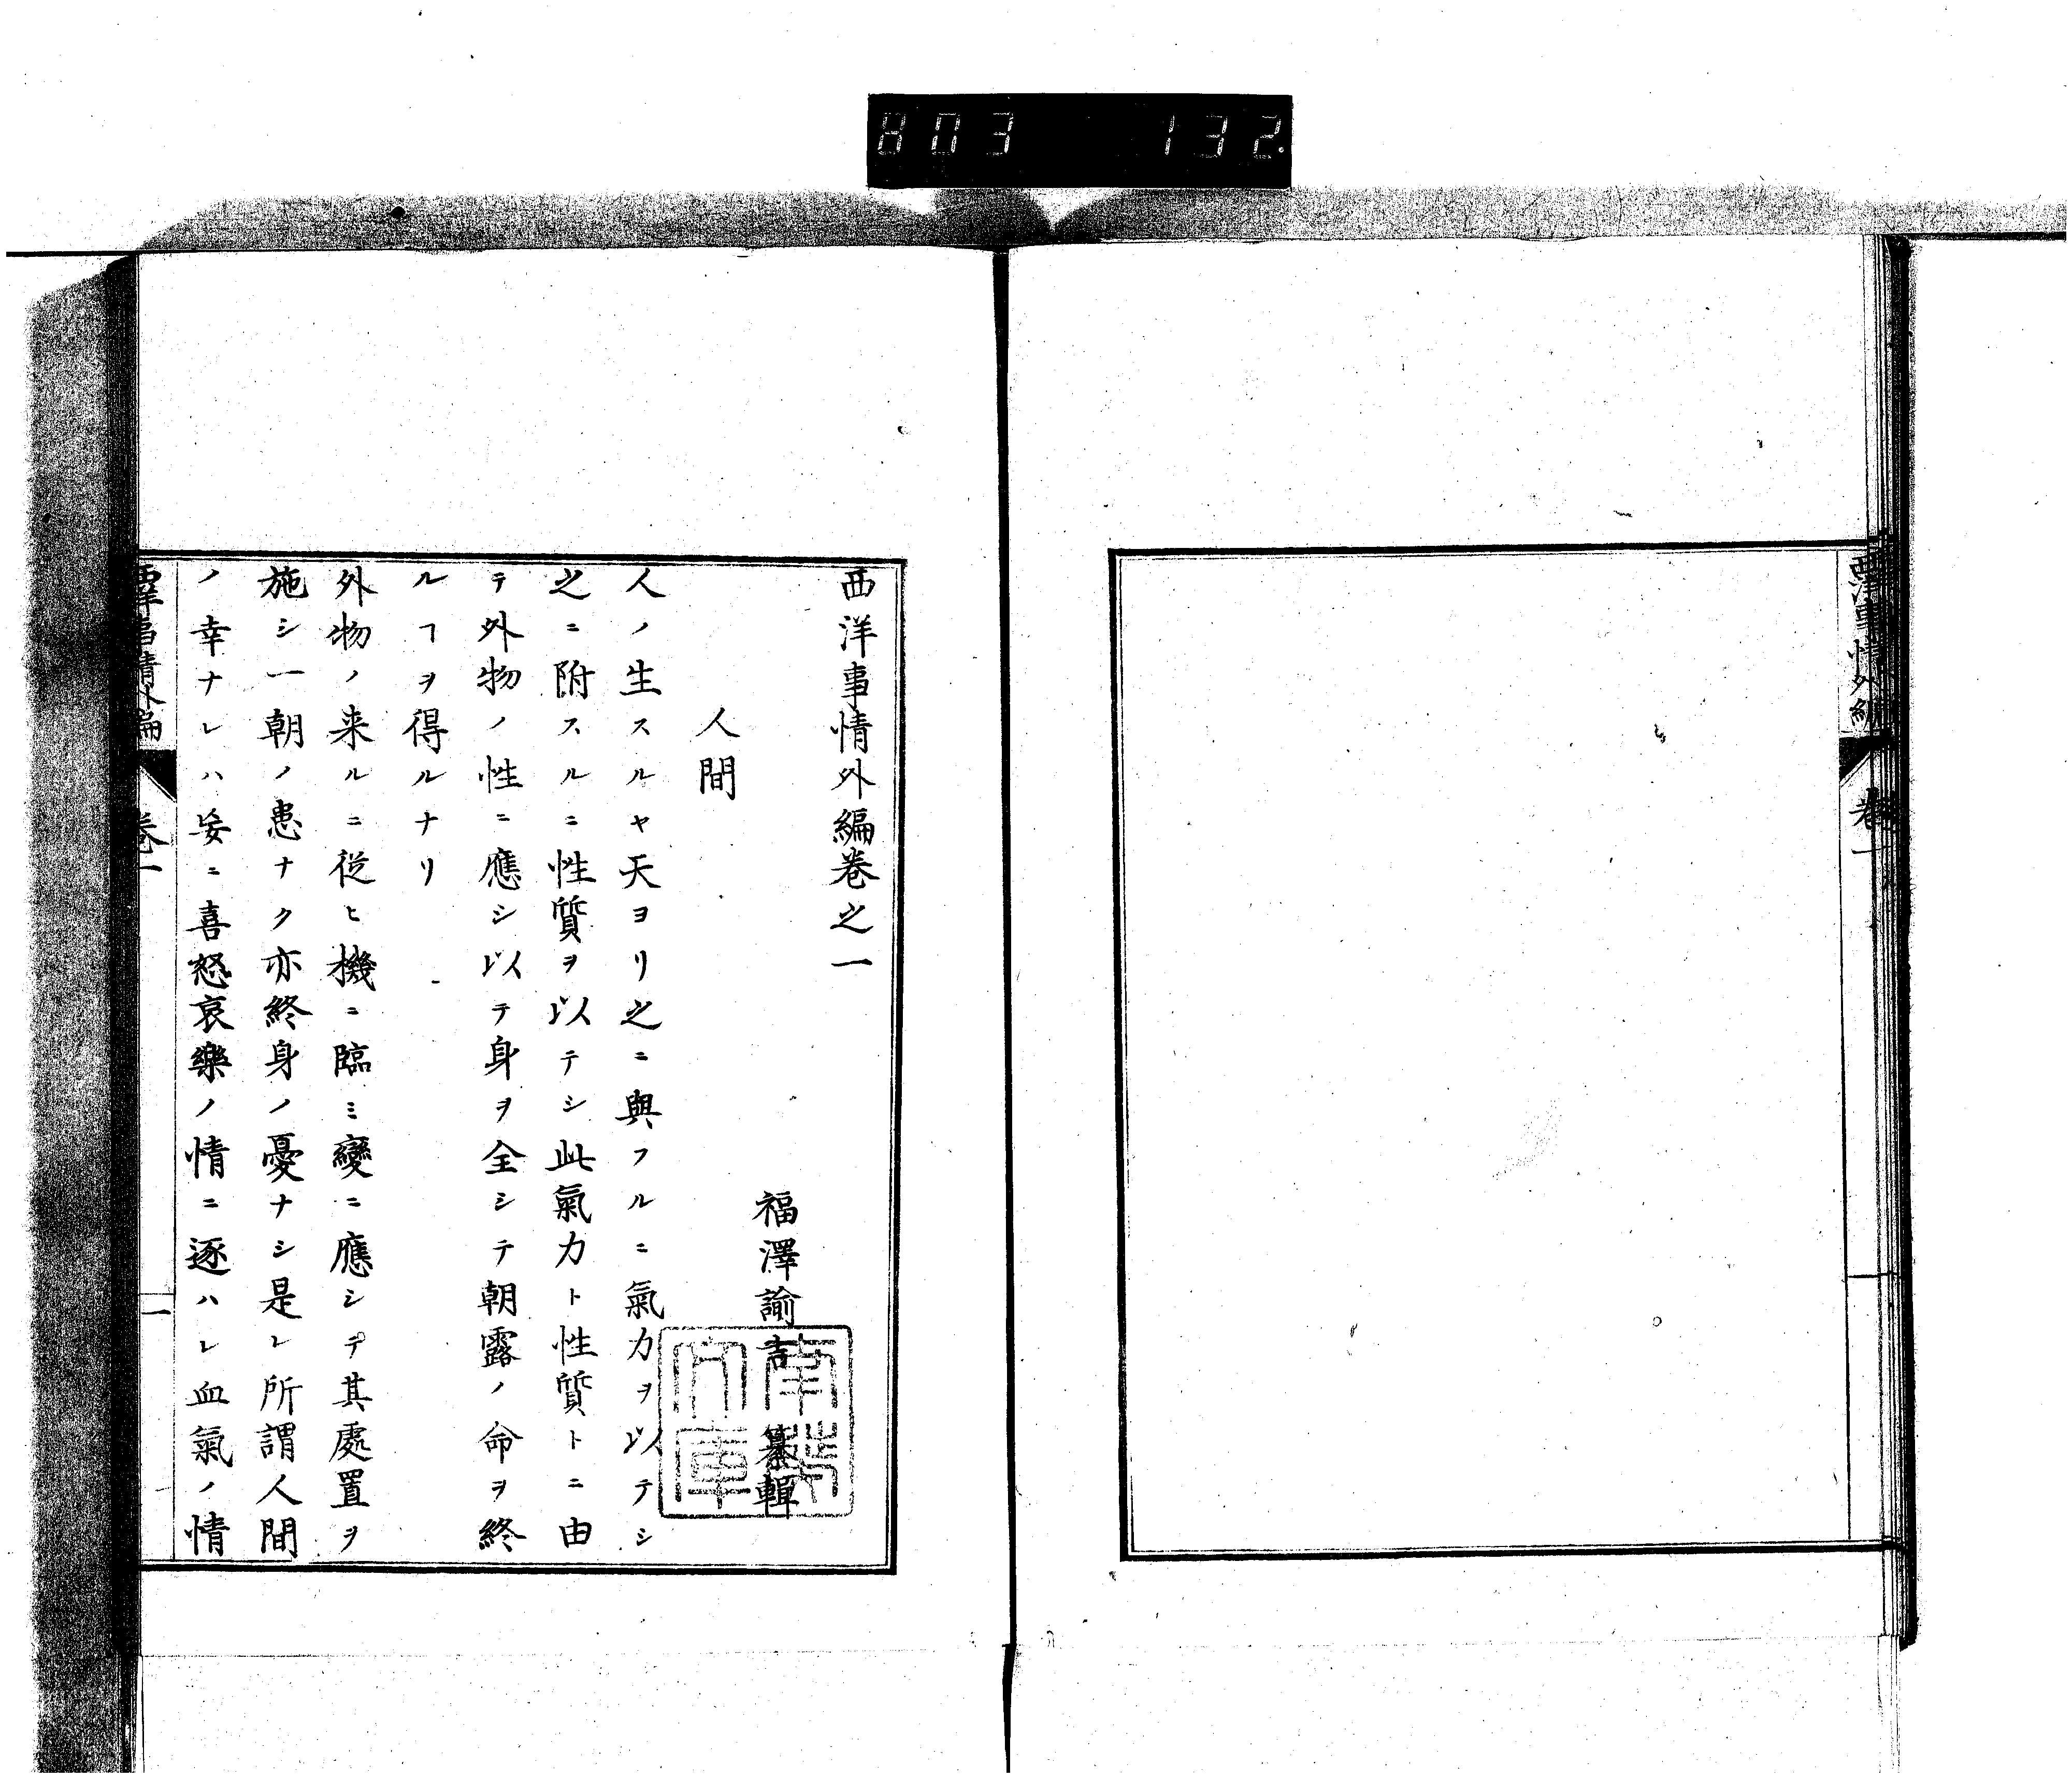 803 132.
西洋事情外編
卷一
西洋事情外編卷之一
福澤諭吉 纂輯
人間
人ノ生スルヤ天ヨリ之ニ與フルニ氣力ヲ以テシ
之ニ附スルニ性質ヲ以テシ此氣力ト性質トニ由
テ外物ノ性ニ應シ以テ身ヲ全シテ朝露ノ命ヲ終
ルヿヲ得ルナリ
外物ノ来ルニ從ヒ機ニ臨ミ變ニ應シテ其處置ヲ
施シ一朝ノ患ナク亦終身ノ憂ナシ是レ所謂人間
ノ幸ナレハ妄ニ喜怒哀樂ノ情ニ逐ハレ血氣ノ情
西洋事情外編
卷一
一